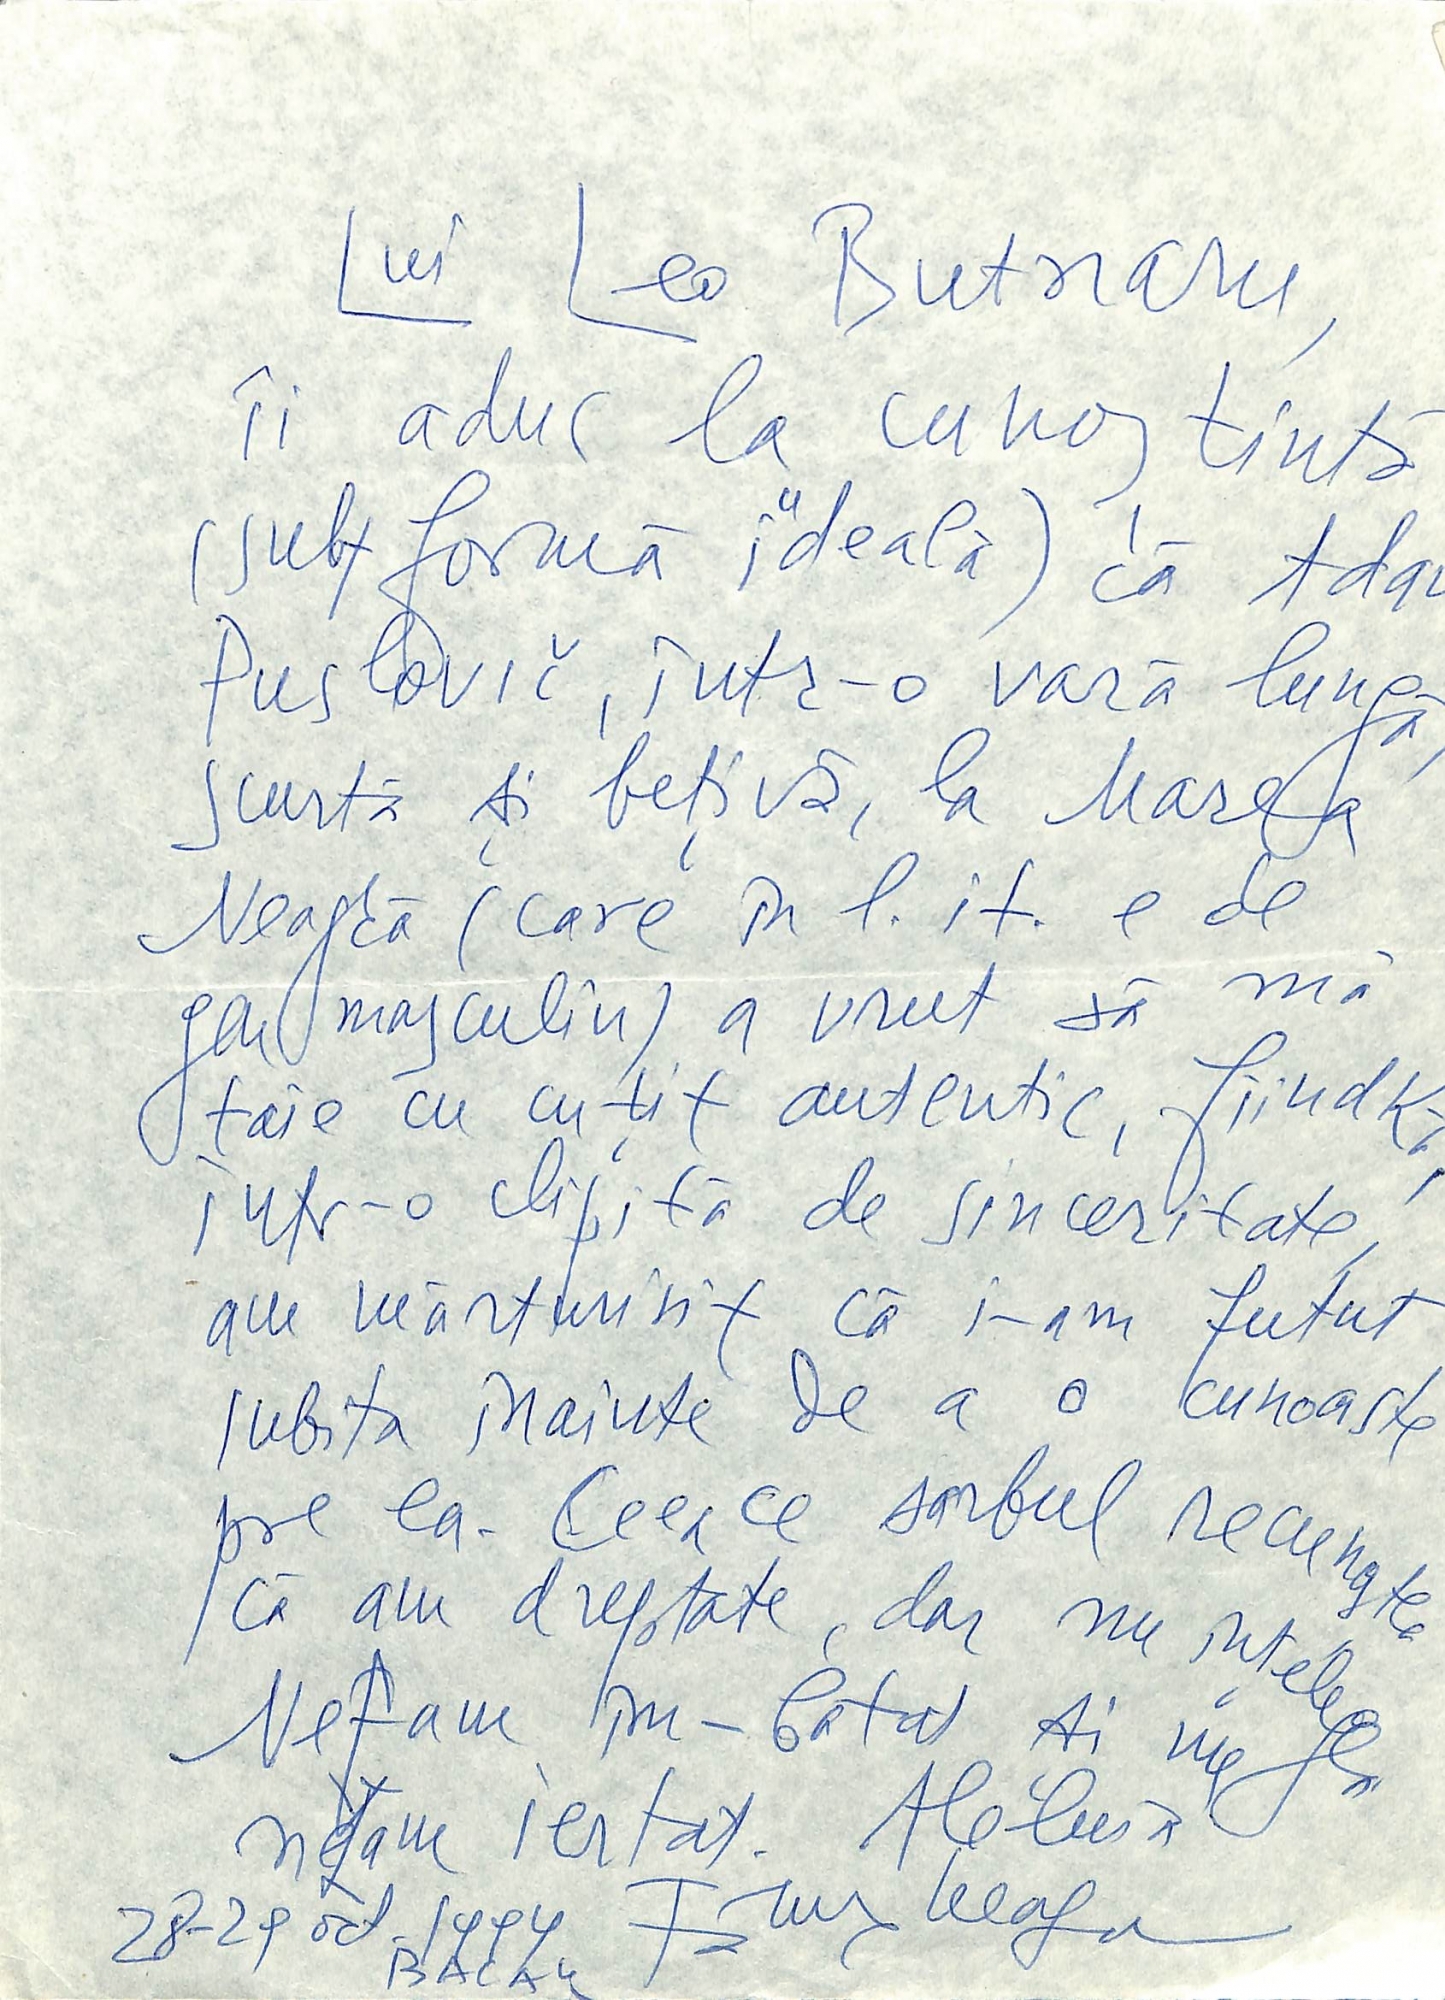 Lui Leo Butnaru,
îi aduc la cunoștință
(subt formă ideală) că Adam
Puslović, într-o vară lungă,
scurtă și bețivă, la Marea
Neagră (care în l. it. e de
gen masculin) a vrut să mă
taie cu cuțit autentic, fiindkă,
într-o clipită de sinceritate,
am mărturisit că i-am futut
iubita înainte de a o cunoaște
pre ea. Ceea ce sârbul recunoștea
că am dreptate, dar nu înțelegea
Ne-am îm-bătat și
ne-am iertat.
28-29 oct. 1994 Fănuș Neagu
BACĂU